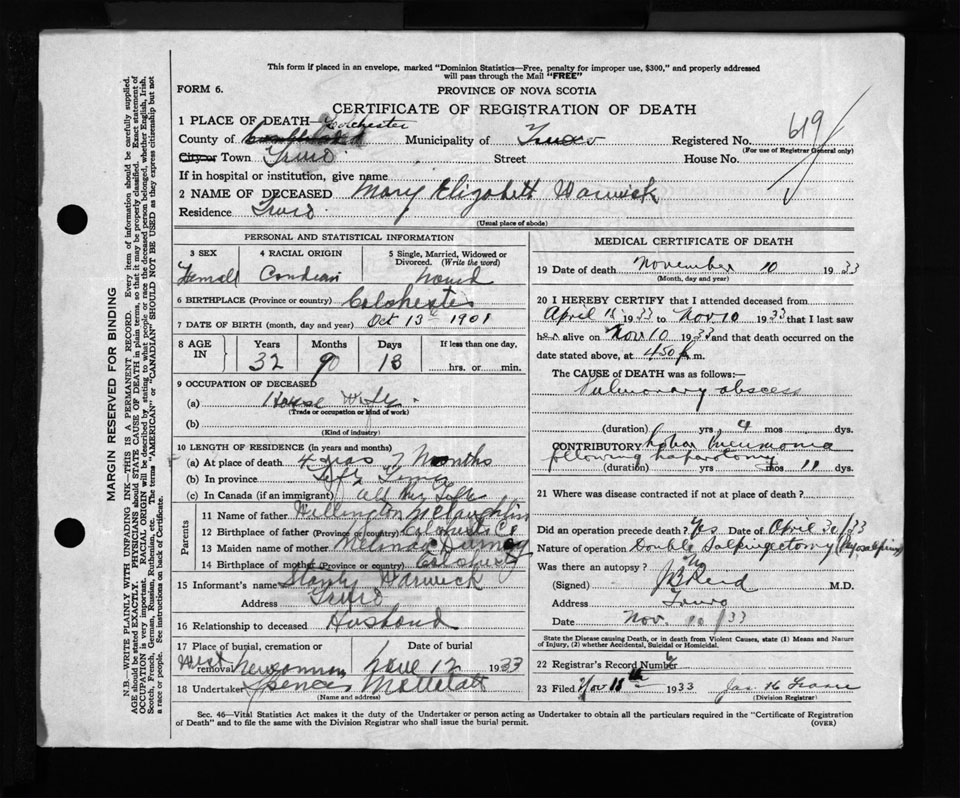 This form if placed in an envelope, marked "Dominion Statistics—Free, penalty for improper use, $300," and properly addressed
will pass through the Mail "FREE"
FORM 6.
PROVINCE OF NOVA SCOTIA
CERTIFICATE OF REGISTRATION OF DEATH
1 PLACE OF DEATH— Colchester
County of Municipality of Truro Registered No. 619
(For use of Registrar General only)
City or Town Truro Street House No.
If in hospital or institution, give name
2 NAME OF DECEASED Mary Elizabeth Warwick
Residence Truro
(Usual place of abode)
PERSONAL AND STATISTICAL INFORMATION
3 SEX 4 RACIAL ORIGIN 5 Single, Married, Widowed or Divorced. (Write the word)
6 BIRTHPLACE (Province or country) Colchester
7 DATE OF BIRTH (month, day and year) Oct 13 1901
8 AGE IN Years Months Days If less than one day,
32 13 hrs. or min.
9 OCCUPATION OF DECEASED
(a) House Wife
(Trade or occupation or kind of work)
(b)
(Kind of industry)
10 LENGTH OF RESIDENCE (in years and months)
(a) At place of death 4 7 Months
(b) In province Life Time
(c) In Canada (if an immigrant) All her Life
Parents
11 Name of father Willington McLaughlin
12 Birthplace of father (Province or country)
13 Maiden name of mother
14 Birthplace of mother (Province or country)
15 Informant's name Stanly Warwick
Address Truro
16 Relationship to deceased Husband
17 Place of burial, cremation or removal Date of burial
West Newannan 12 1933
18 Undertaker Spencer
(Name and address)
MEDICAL CERTIFICATE OF DEATH
19 Date of death November 10 1933
(Month, day and year)
20 I HEREBY CERTIFY that I attended deceased from
April 1933 to Nov 10 1933 that I last saw
her alive on Nov 10 1933 and that death occurred on the
date stated above, at 4.30 p m.
The CAUSE of DEATH was as follows:—
Pulmonary abscess
(duration) yrs 9 mos dys.
CONTRIBUTORY Lobar Pneumonia
following Laparotomy
(duration) yrs mos 11 dys.
21 Where was disease contracted if not at place of death?
Did an operation precede death? Yes Date of April 30/33
Nature of operation Double Salpingectomy (Pyosalpinx)
Was there an autopsy? No
(Signed) M.D.
Address Truro
Date Nov. 10/33
State the Disease causing Death, or in death from Violent Causes, state (1) Means and Nature
of Injury, (2) whether Accidental, Suicidal or Homicidal.
22 Registrar's Record Number
23 Filed Nov 1933
(Division Registrar)
Sec. 46—Vital Statistics Act makes it the duty of the Undertaker or person acting as Undertaker to obtain all the particulars required in the "Certificate of Registration
of Death" and to file the same with the Division Registrar who shall issue the burial permit.
(OVER)
MARGIN RESERVED FOR BINDING
N.B.—WRITE PLAINLY WITH UNFADING INK—THIS IS A PERMANENT RECORD. Every item of information should be carefully supplied.
AGE should be stated EXACTLY. PHYSICIANS should STATE CAUSE OF DEATH in plain terms, so that it may be properly classified. Exact statement of
OCCUPATION is very important. RACIAL ORIGIN will be described by stating to what people or race the deceased person belonged, whether English, Irish,
Scotch, French, German, Russian, Ruthenian, etc. The terms "AMERICAN" or "CANADIAN" SHOULD NOT BE USED as they express citizenship but not
a race or people. See instructions on back of Certificate.